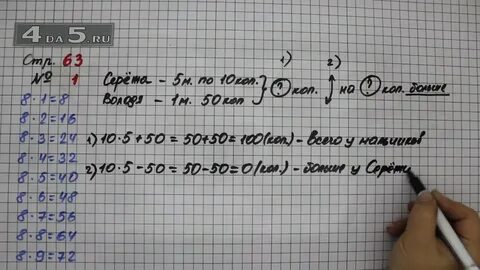 4DA5.RU
Стр. 63
№ 1
1) 2)
Серёжа – 5 м. по 10 коп. } ? коп. ↕ на ? коп. больше
Володя – 1 м. 50 коп
8·1=8
8·2=16
8·3=24
8·4=32
8·5=40
8·6=48
8·7=56
8·8=64
8·9=72
1) 10·5+50=50+50=100(коп.) – Всего у мальчиков
2) 10·5-50=50-50=0(коп.) – больше у Серёжи